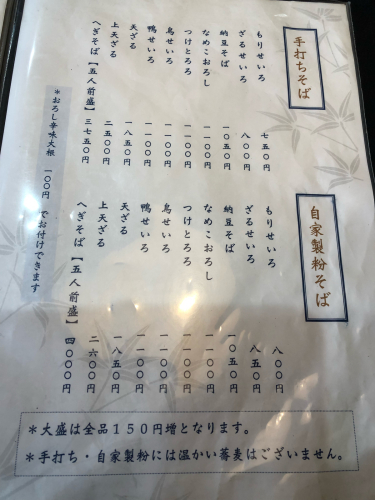 手打ちそば
もりせいろ 七五〇円
ざるせいろ 八〇〇円
納豆そば 一〇五〇円
なめこおろし 一一〇〇円
つけとろろ 一一〇〇円
鳥せいろ 一一〇〇円
鴨せいろ 一一〇〇円
天ざる 一八五〇円
上天ざる 二五〇〇円
へぎそば【五人前盛】 三七五〇円
自家製粉そば
もりせいろ 八〇〇円
ざるせいろ 八五〇円
納豆そば 一〇五〇円
なめこおろし 一一〇〇円
つけとろろ 一一〇〇円
鳥せいろ 一一〇〇円
鴨せいろ 一一〇〇円
天ざる 一八五〇円
上天ざる 二六〇〇円
へぎそば【五人前盛】 四〇〇〇円
＊おろし辛味大根 一〇〇円 でお付けできます
＊大盛は全品１５０円増となります。
＊手打ち・自家製粉には温かい蕎麦はございません。